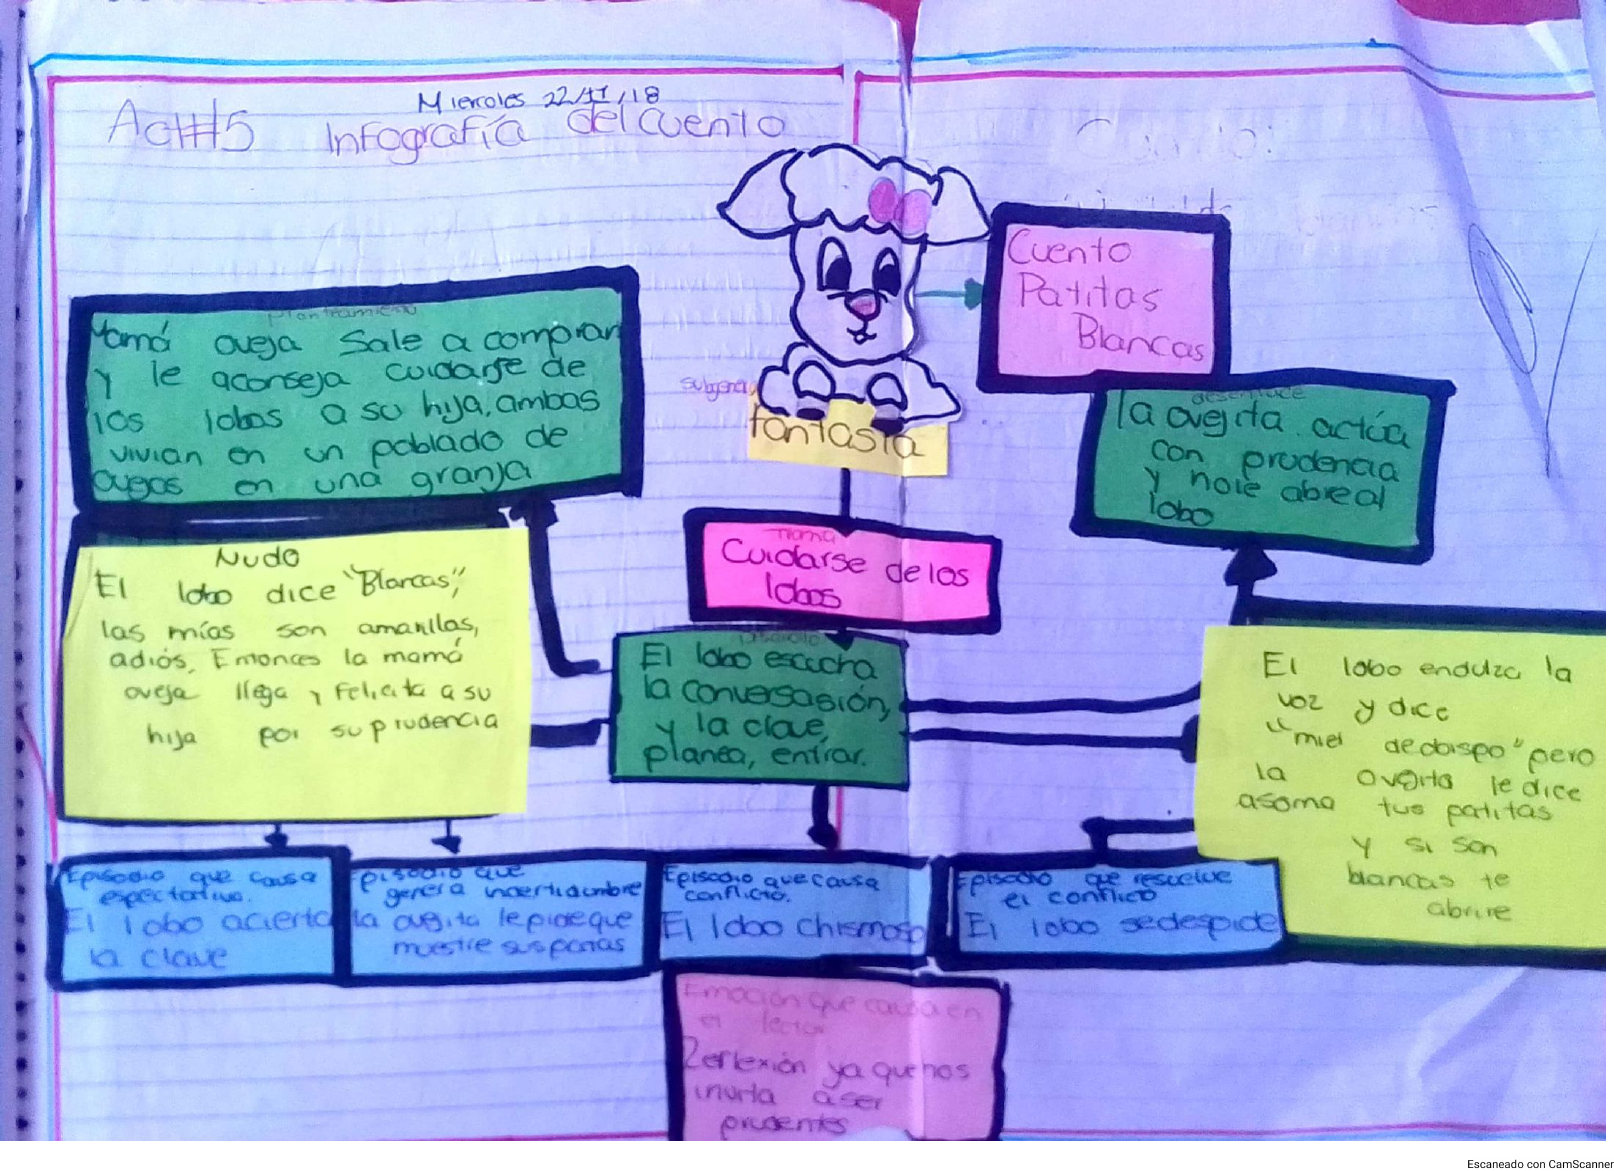 Miercoles 22/11/18
Act#5 Infografía del cuento
Cuento
Patitas
Blancas
planteamiento
Mamá oveja Sale a comprar
y le aconseja cuidarse de
los lobos a su hija, ambas
vivian en un poblado de
ovejas en una granja
subgenero
fantasia
desenlace
la ovejita actúa
con prudencia
y no le abre al
lobo
Trama
Cuidarse de los
lobos
Nudo
El lobo dice "Blancas",
las mías son amarillas,
adiós, Entonces la mamá
oveja llega y felicita a su
hija por su prudencia
Desarrollo
El lobo escucha
la conversasión,
y la clave,
planea, entrar.
El lobo endulza la
voz y dice
"miel de obispo" pero
la ovejita le dice
asoma tus patitas
y si son
blancas te
abrire
Episodio que causa
espectativa.
El lobo acierta
la clave
Episodio que
genera incertidumbre
la ovejita le pide que
muestre sus patas
Episodio que causa
conflicto.
El lobo chismoso
Episodio que resuelve
el conflicto
El lobo se despide
Emoción que causa en
el lector
Reflexión ya que nos
invita a ser
prudentes
Escaneado con CamScanner